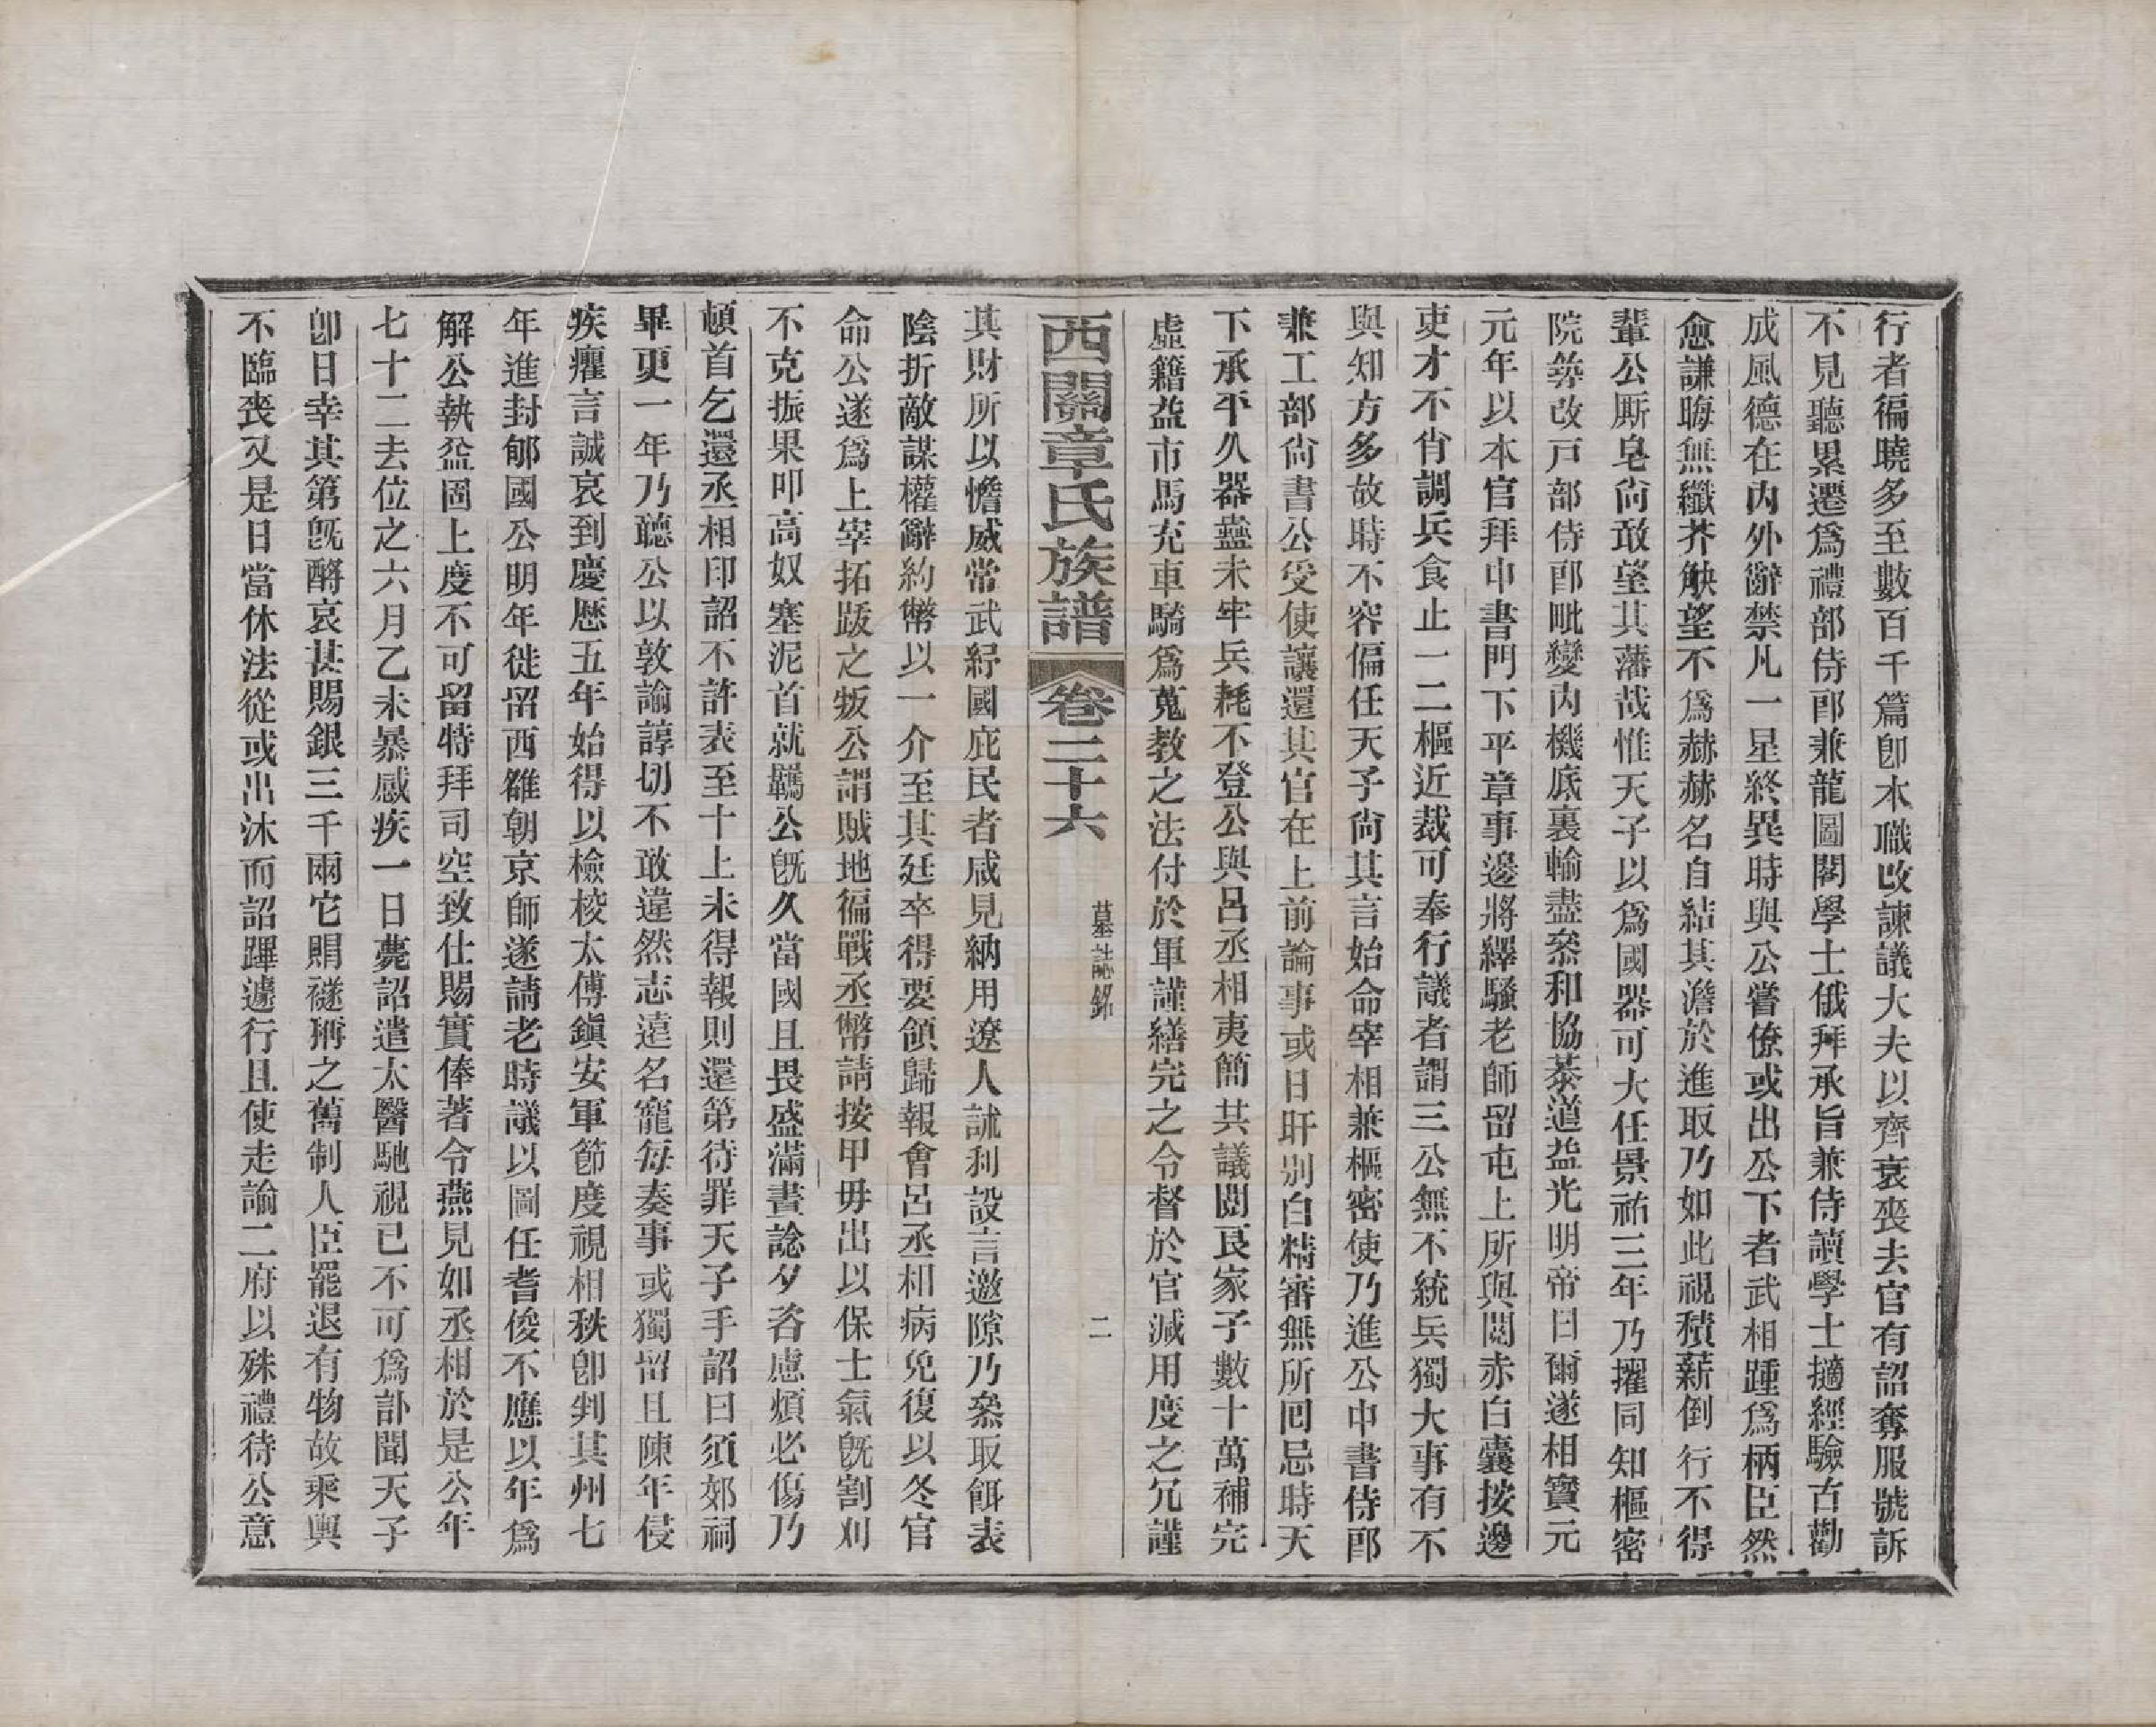 行者徧曉多至數百千篇卽本職改諫議大夫以齊衰喪去官有詔奪服號訴
不見聽累遷爲禮部侍郎兼龍圖閣學士俄拜承旨兼侍讀學士擿經驗古勸
成風德在內外辭禁凡一星終異時與公嘗僚或出公下者武相踵爲柄臣然
愈謙晦無纖芥觖望不爲赫赫名自結其澹於進取乃如此視積薪倒行不得
輩公厮皂尙敢望其藩哉惟天子以爲國器可大任景祐三年乃擢同知樞密
院筭改戸部侍郎毗變內機底裏輸盡叅和協恭道益光明帝曰爾遂相寶元
元年以本官拜中書門下平章事邊將繹騷老師留屯上所與閱赤白囊按邊
吏才不肖調兵食止一二樞近裁可奉行議者謂三公無不統兵獨大事有不
與知方多故時不容偏任天子尙其言始命宰相兼樞密使乃進公中書侍郎
兼工部尙書公受使讓還其官在上前論事或日旰別白精審無所回忌時天
下承平久器蠱未牢兵耗不登公與呂丞相夷簡共議閱良家子數十萬補完
虛籍益市馬充車騎爲蒐教之法付於軍謹繕完之令督於官減用度之冗謹
西關章氏族譜 卷三十六 墓誌銘 二
其財所以憺威常武紓國庇民者咸見納用遼人訹利設言邀隙乃叅取餌表
陰折敵謀權辭約幣以一介至其廷卒得要領歸報會呂丞相病免復以冬官
命公遂爲上宰拓跋之叛公謂賊地徧戰丞幣請按甲毋出以保士氣旣割刈
不克振果叩高奴塞泥首就羈公旣久當國且畏盛滿晝諗夕咨慮煩必傷乃
頓首乞還丞相印詔不許表至十上未得報則還第待罪天子手詔曰須郊祠
畢更一年乃聽公以敦諭諄切不敢違然志遠名寵每奏事或獨留且陳年侵
疾癯言誠哀到慶歷五年始得以檢校太傅鎭安軍節度視相秩卽判其州七
年進封郇國公明年徙留西雒朝京師遂請老時議以圖任耆俊不應以年爲
解公執益固上度不可留特拜司空致仕賜實俸著令燕見如丞相於是公年
七十二去位之六月乙未暴感疾一日薨詔遣太醫馳視已不可爲訃聞天子
卽日幸其第旣酹哀甚賜銀三千兩它賵襚稱之舊制人臣罷退有物故乘輿
不臨喪又是日當休法從或出沐而詔蹕遽行且使走諭二府以殊禮待公意